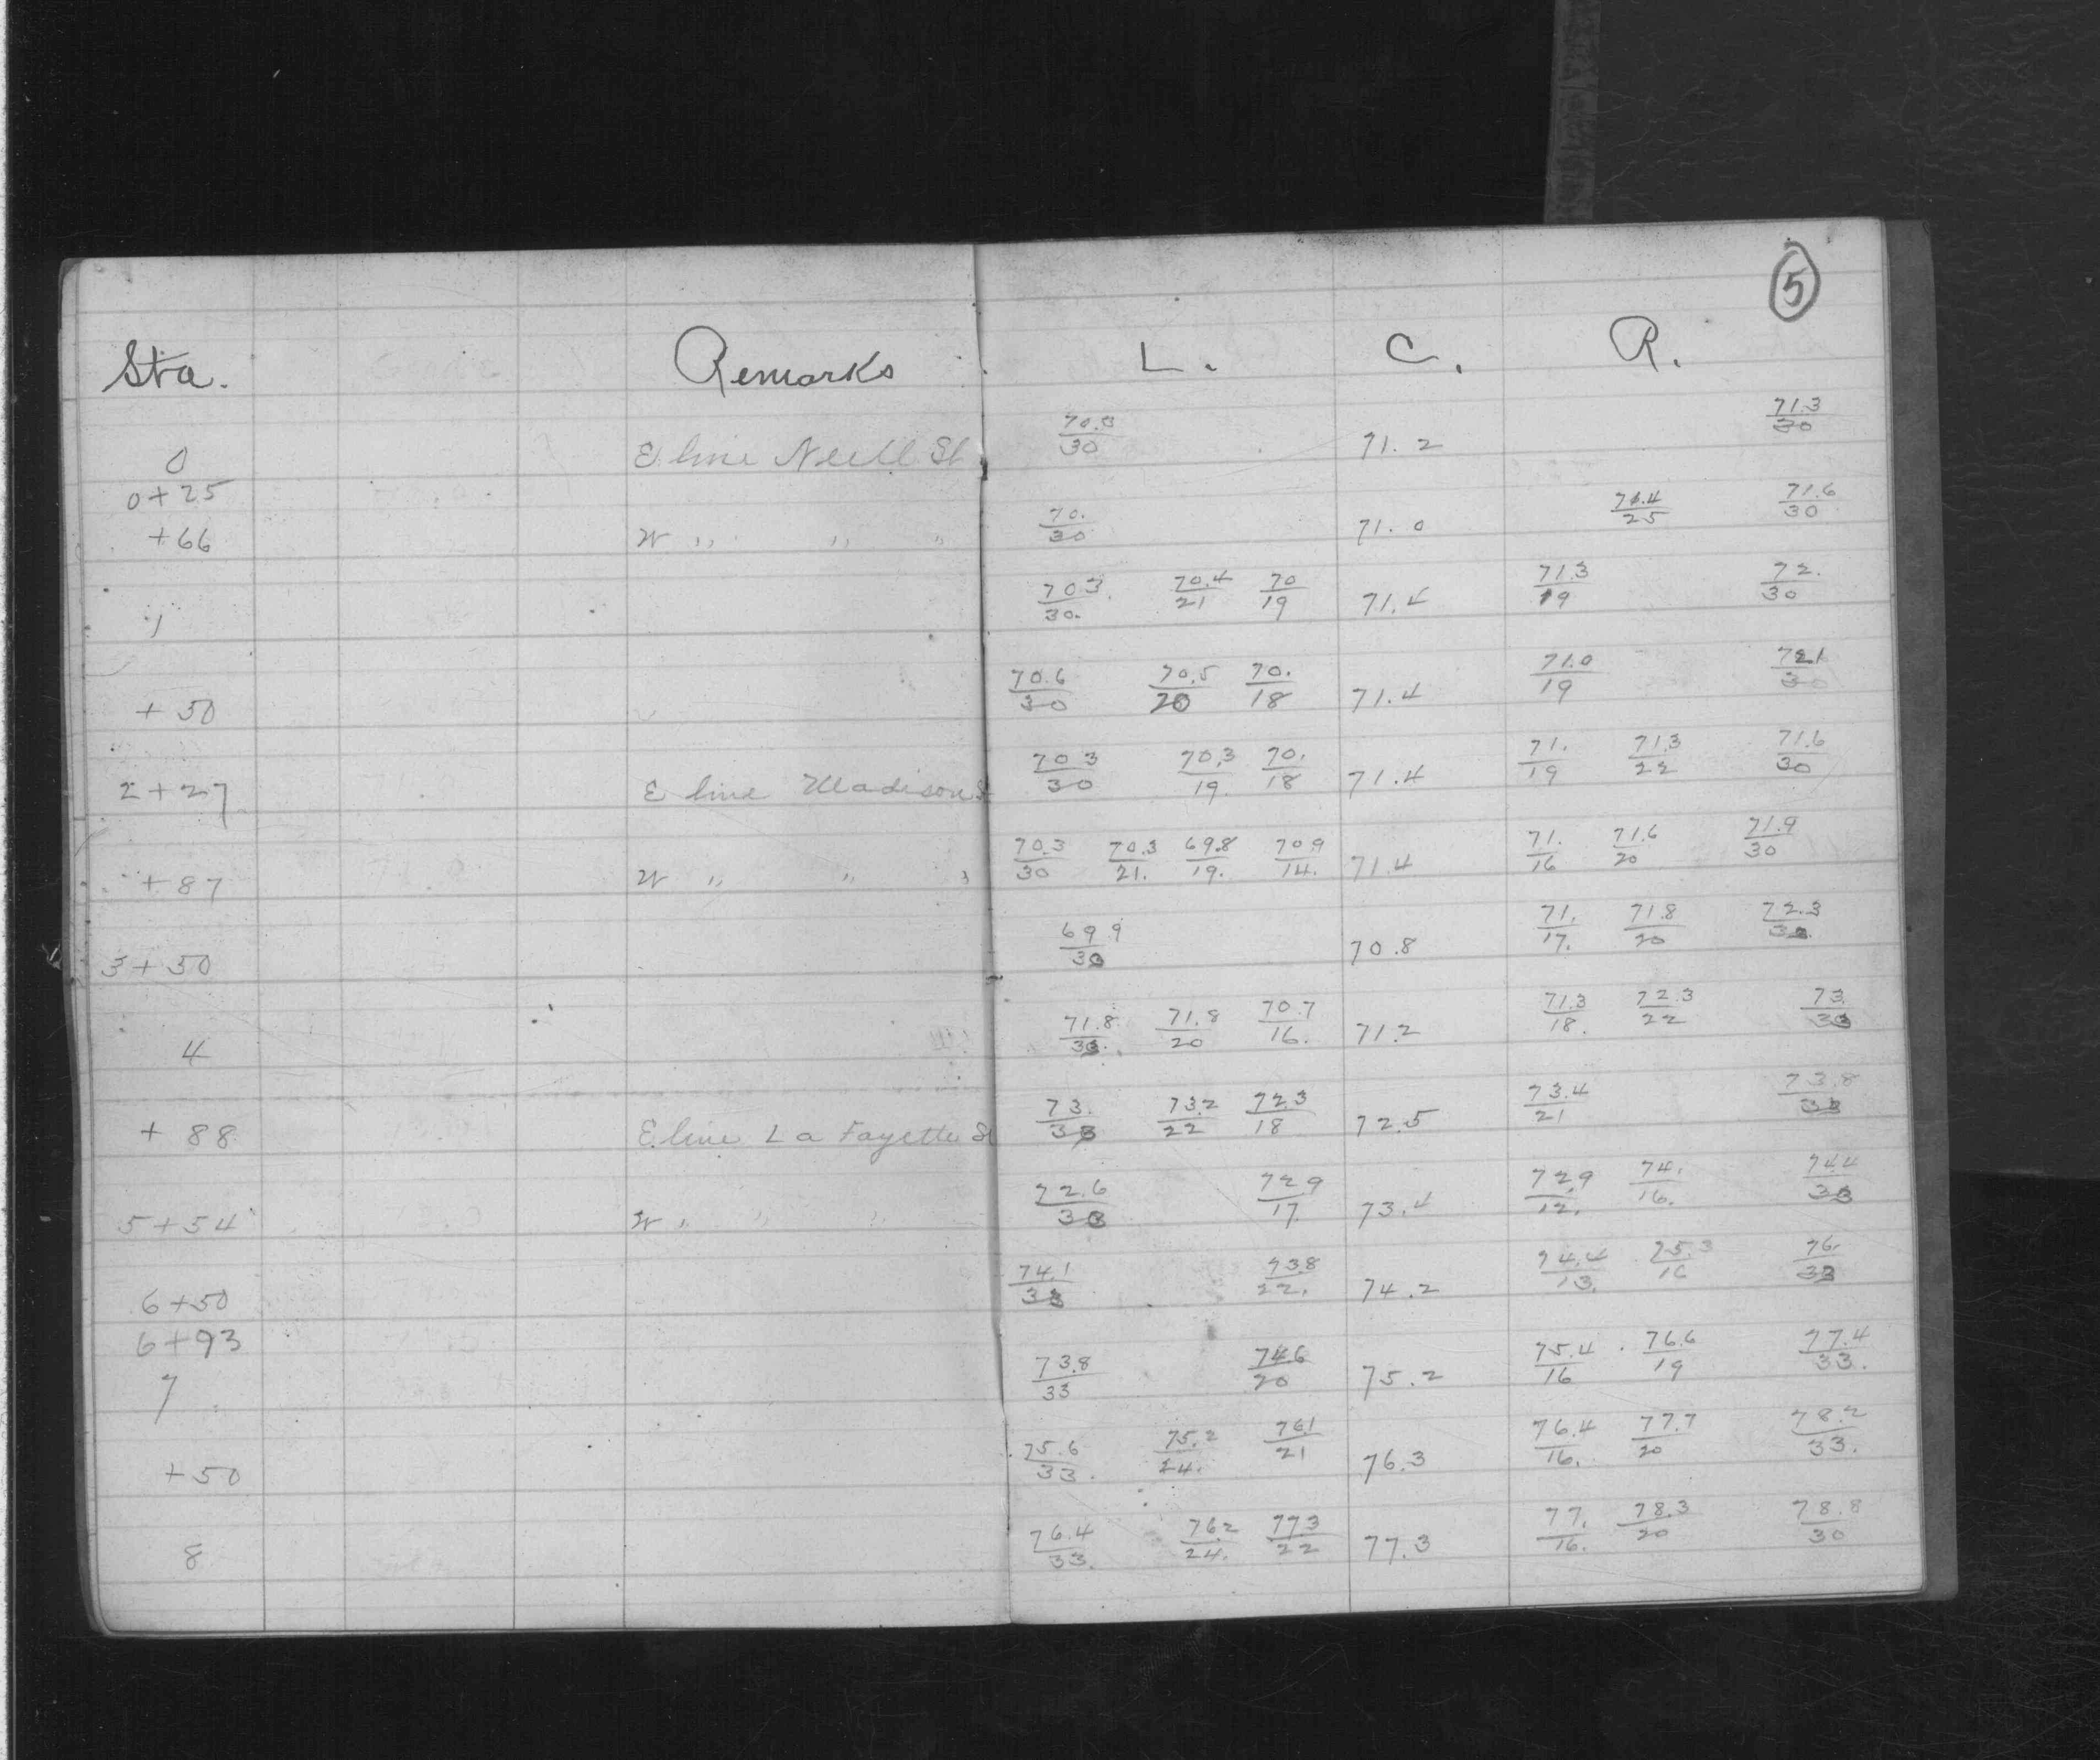 5
Sta. Remarks L. C. R.
0 E line Neill St 70.8/30 71.2 71.3/30
0+25
+66 W ,, ,, ,, 70./30 71.0 71.4/25 71.6/30
1 70 3/30. 70.4/21 70/19 71.4 71.3/19 72./30
+50 70.6/30 70.5/20 70./18 71.4 71.0/19 72.1/30
2+27 E line Madison St 70 3/30 70.3/19. 70./18 71.4 71./19 71.3/22 71.6/30
+87 W ,, ,, ,, 70.3/30 70.3/21. 69.8/19. 70 9/14. 71.4 71./16 71.6/20 71.9/30
3+50 69 9/33 70.8 71./17. 71.8/20 72.3/33
4 71.8/33. 71.8/20 70.7/16. 71.2 71.3/18. 72.3/22 73/33
+88 E line La Fayette St 73./33 73.2/22 72.3/18 72.5 73.4/21 73.8/33
5+54 W ,, ,, ,, 72.6/33 72 9/17 73.4 72.9/12. 74./16. 74.4/33
6+50 74.1/33 73.8/22. 74.2 74.4/13. 75.3/16 76./33
6+93
7 73.8/33 74.6/20 75.2 75.4/16 76.6/19 77.4/33.
+50 75.6/33. 75.2/24. 76.1/21 76.3 76.4/16. 77.7/20 78.2/33.
8 76.4/33. 76.2/24. 77 3/22 77.3 77./16. 78.3/20 78.8/30